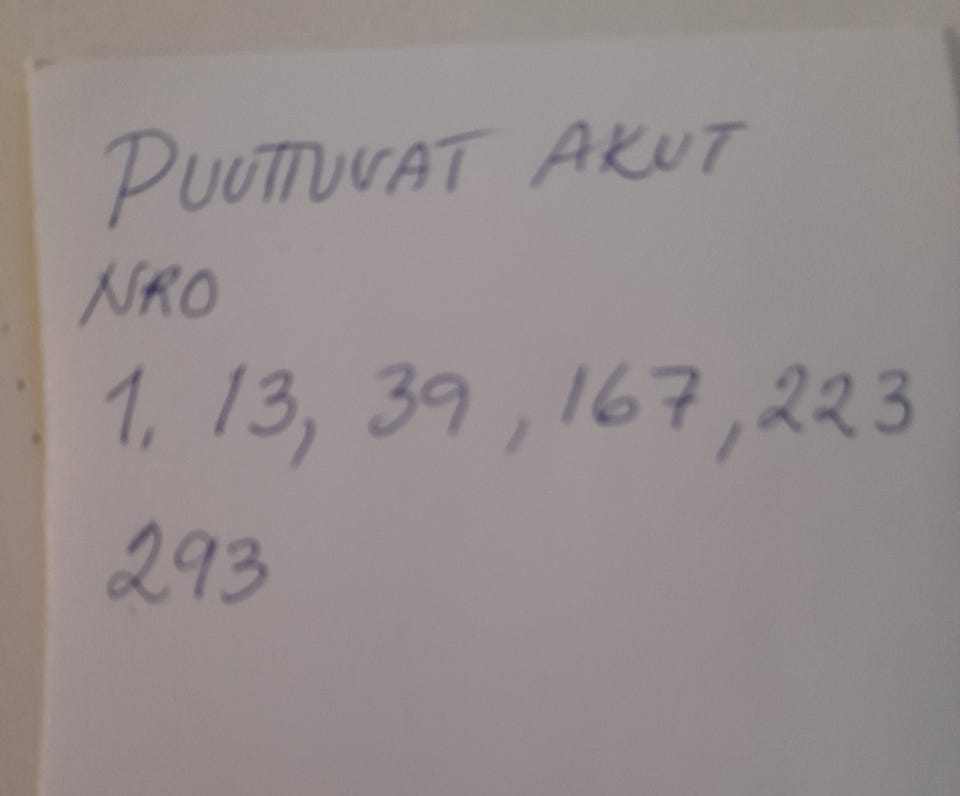 PUUTTUVAT AKUT
NRO
1, 13, 39, 167, 223
293